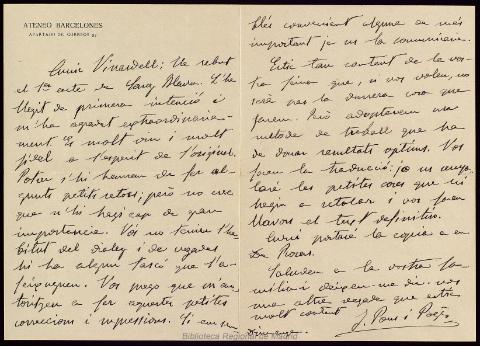 ATENEO BARCELONÉS
APARTADO DE CORREOS
Amic Vinardell: He rebut
el 1er acte de
llegit de primera intenció i
m'ha agradat extraordinaria-
ment. És molt viu i molt
fidel a l'esperit de l'original.
Potser s'hi haurien de fer al-
guns petits retocs; però no crec
que n'hi hagi cap de gran
importància. Vós no teniu l'há-
bitut del dialeg i de vegades
hi ha algun tascó que l'a-
Vos prego que m'au-
toritzeu a fer aquestes petites
correccions i supressions. Si en un
convenient alguna de més
important ja us la comunicaré.
Estic tan content de la vos-
tra feina que, si vos voleu, no
serà pas la darrera cosa que
farem. Però adoptarem un
mètode de treball que ha
de donar resultats òptims. Vos
fareu la traducció; jo us
les petites coses que hi
hagin a retocar i vos fareu
llavors el text definitiu.
Enric portarà la copia a en
Saludeu a la vostra fa-
milia i deixeu-me dir-vos
una altra vegada que estic
molt content
J. Pous i Pagès
Biblioteca Regional de Madrid